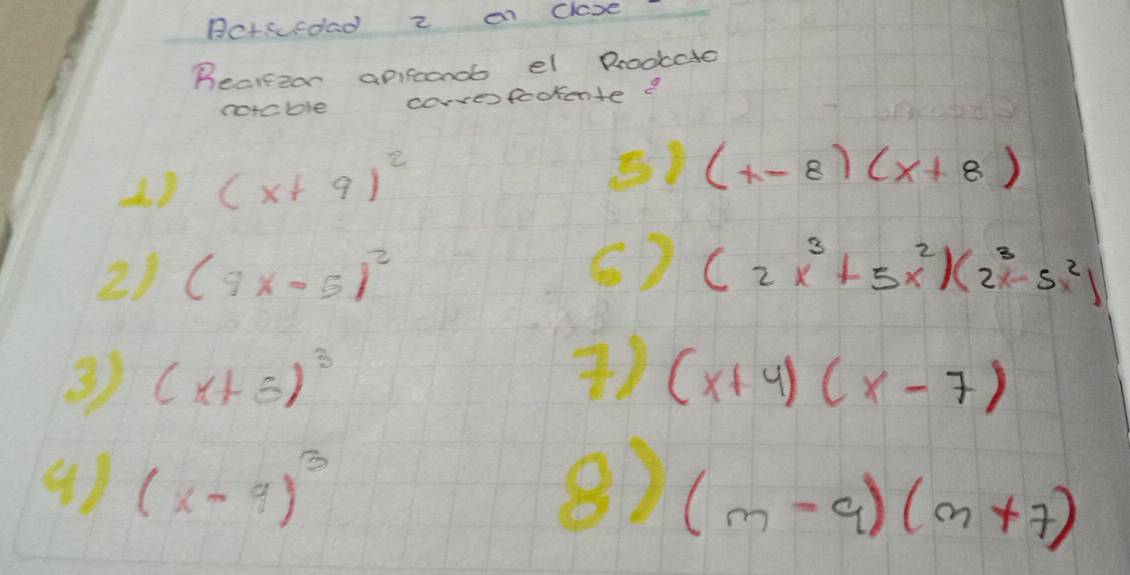 Actividad 2 en clase
Realizar aplicando el Producto
notable correspondiente:
1) (x+ 9)²
5) (x-8)(x+8)
2) (9x-5)²
6) (2x³+5x²)(2x³-5x²)
3) (x+5)³
7) (x+4)(x-7)
4) (x-9)³
8) (m-9)(m+7)